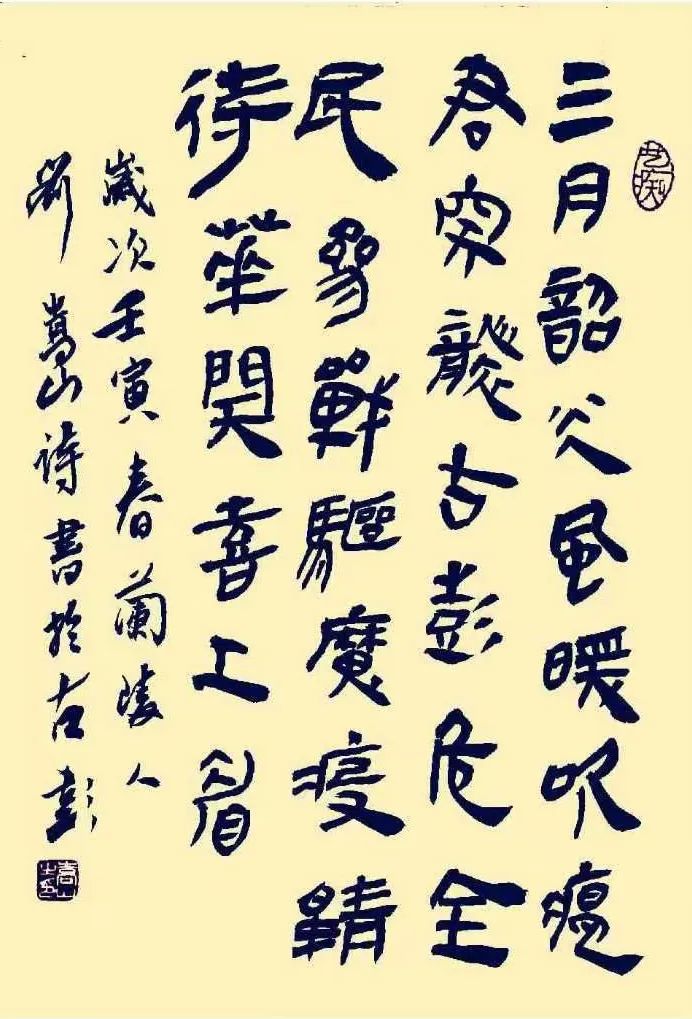 三月韶光風暖吹瘟
君突襲古彭危全
民參戰驅魔疫靜
待華開喜上眉
歲次壬寅春蘭陵人
劉嵩山詩書於古彭